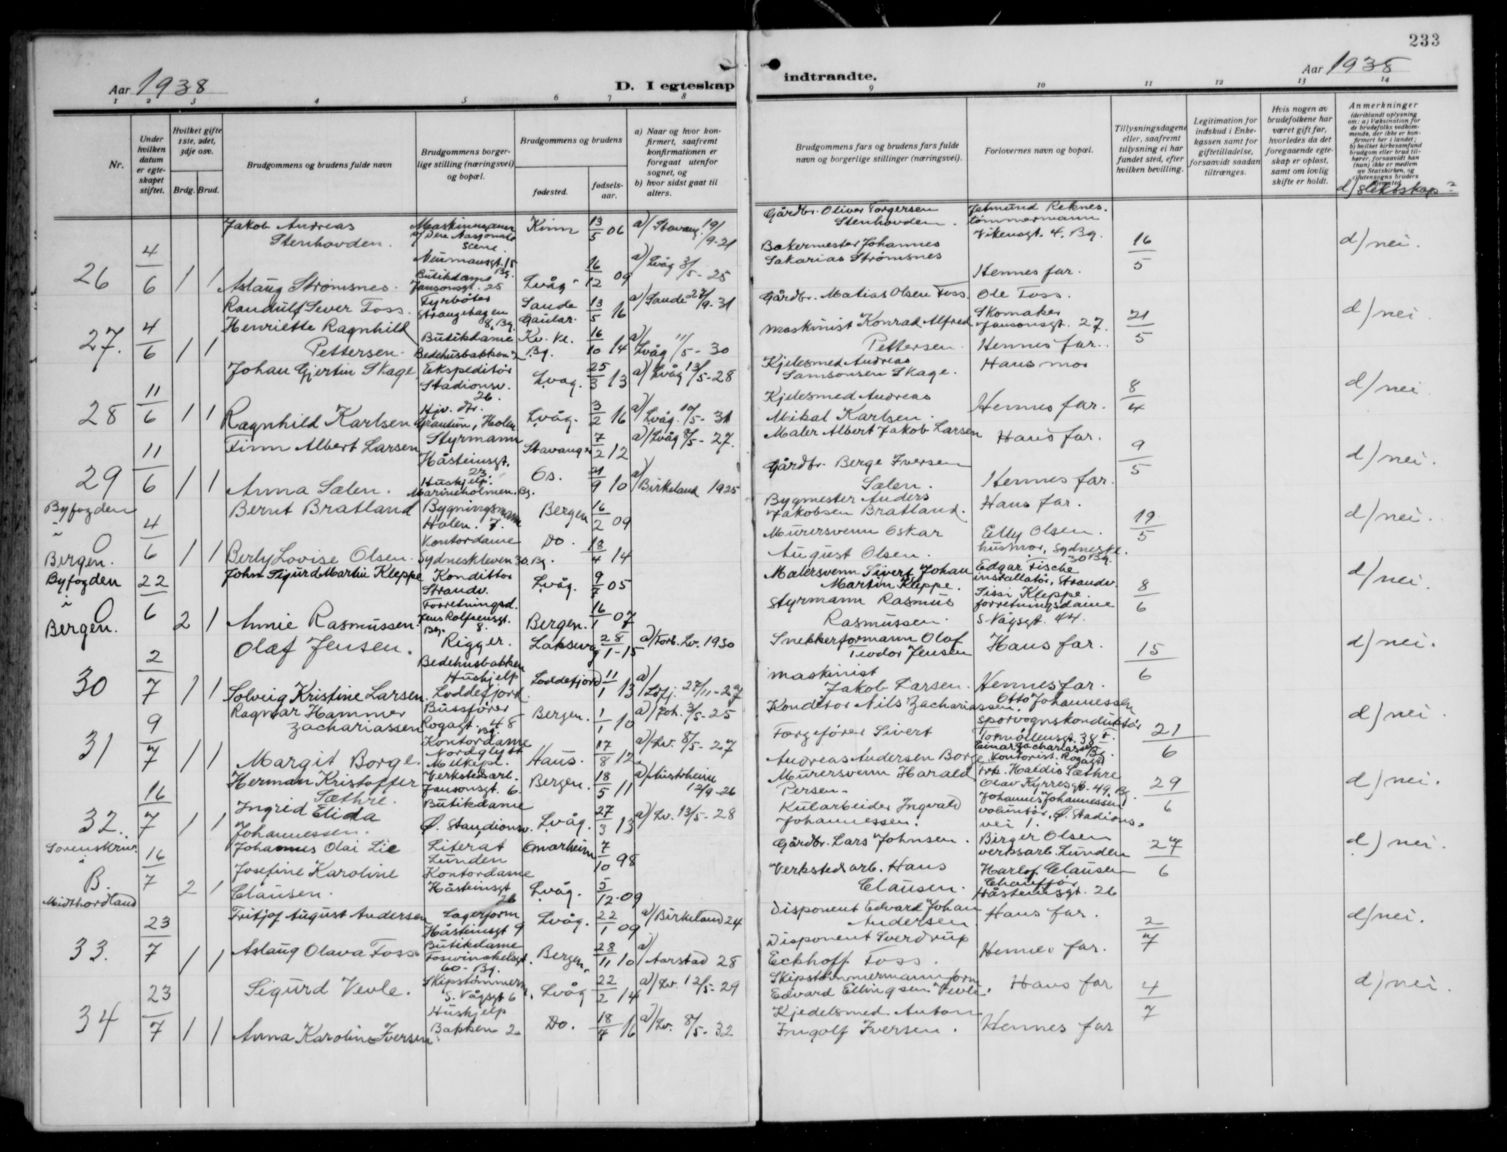 233
Aar 1938
D. I egteskap indtraadte.
Aar 1938
1 2 3 4 5 6 7 8 9 10 11 12 13 14
Nr.
Under hvilken datum er egteskapet stiftet.
Hvilket gifte 1ste, 2det, 3dje osv.
Brdg. Brud.
Brudgommens og brudens fulde navn
Brudgommens borgerlige stilling (næringsvei) og bopæl.
Brudgommens og brudens
fødested.
fødselsaar.
a) Naar og hvor konfirmert, saafremt konfirmationen er foregaat utenfor sognet, og
b) hvor sidst gaat til alters.
Brudgommens fars og brudens fars fulde navn og borgerlige stillinger (næringsvei).
Forlovernes navn og bopæl.
Tillysningsdagene eller, saafremt tillysning ei har fundet sted, efter hvilken bevilling.
Legitimation for indskud i Enkekassen samt for giftetilladelse, forsaavidt saadan tiltrænges.
Hvis nogen av brudefolkene har været gift før, hvorledes da det foregaaende egteskap er opløst, samt om lovlig skifte er holdt.
Anmerkninger
d) Slektskap?
26 4/6 1 1
Jakob Andreas Stenhovden. Kinn 13/5 06 a) Stavang 19/9-21
Gårdbr. Oliver Torgersen Stenhovden. Jetmund Reknes. tømmermann Vikensgt. 4. Bg. 16/5 d) nei.
Aslaug Strømsnes. Butikdame Jansonsgt. 25 Lvåg 16/12 09 a) Lvåg 3/5-25
Bakermester Johannes Sakarias Strømsnes Hennes far.
27. 4/6 1 1
Randulf Sever Foss. Sande Gaular. 13/5 16 a) Sande 27/9-31
Gårdbr. Matias Olsen Foss. Ole Foss. Skomaker Jansonsgt. 27. 21/5 d) nei
Henriette Ragnhild Pettersen. Butikdame Bedehusbakken 2 Kv. Vl. Bg. 16/10 14 a) Lvåg 11/5-30
Maskinist Konrad Alfred Pettersen. Hennes far.
28 11/6 1 1
Johan Gjertin Skage Ekspeditør Stadionsv. 26. Lvåg. 25/3 13 a) Lvåg 13/5-28
Kjelesmed Andreas Samsonsen Skage. Hans mor 8/4 d) nei
Ragnhild Karlsen Lvåg. 3/2 16 a) Lvåg. 10/5-31
Kjelesmed Andreas Mikal Karlsen. Hennes far.
29 11/6 1 1
Finn Albert Larsen Styrmann Håsteinsgt. 23. Stavanger 7/2 12 a) Lvåg 8/5-27.
Maler Albert Jakob Larsen Hans far. 9/5 d) nei.
Anna Sælen. Hushjelp. Marineholmen. Bg. Os. 21/9 10 a) Birkeland 1925
Gårdbr. Berge Iversen Sælen. Hennes far.
Byfogden i Bergen. 4/6 1 1
Bernt Bratland Bygningsmann Holen. 7. Bergen 16/2 09
Bygmester Anders Jakobsen Bratland. Hans far. 19/5 d) nei.
Berly Lovise Olsen. Kontordame Sydneskleven 30. Bg. Do. 13/4 14
Murersvenn Oskar August Olsen. Elly Olsen. husmor, Sydneskl. 30 Bg.
Byfogden i Bergen. 22/6 2 1
John Sigurd Martin Kleppe Konditor Strandv. Lvåg. 9/7 05
Malersvenn Sivert Johan Martin Kleppe. Edgar Fische installatør, Strandv. 8/6 d) nei.
Annie Rasmussen. Forretningsd. Jens Rolfsensgt. 8. Bg. Bergen. 16/1 07
Styrmann Rasmus Rasmussen. Sissi Kleppe. forretningsdame S. Vågsgt 44.
30 2/7 1 1
Olaf Jensen. Rigger. Bedehusbakken Laksevåg 28/1-15 a) Forb. Lv. 1930
Snekkerformann Olaf Teodor Jensen Hans far. 15/6 d) nei.
Solveig Kristine Larsen. Hushjelp Loddefjord. Loddefjord 11/1 13 a) Lofj. 27/11-27
Maskinist Jakob Larsen. Hennes far.
31 9/7 1 1
Ragnvar Hammer Zachariassen Bussfører Rogagt. 48 Bg. Bergen. 1/1 10 a) Joh. 3/5-25
Konditor Nils Zachariassen. Otto Johannessen sporvognskonduktør 21/6 d) nei
Margit Borge. Kontordame Nordglytt Melkepl. Haus. 17/8 12 a) Lv. 8/5-27
Forgefører Sivert Andreas Andersen Borge
32. 16/7 1 1
Herman Kristoffer Sæthre. Verkstedarb. Jansonsgt. 6 Bergen. 18/5 11 12/9-26
Murersvenn Harald Persen. Frk. Haldis Sæthre Olav Kyrresgt. 49, Bg. 29/6 d) nei.
Ingrid Elida Johannessen. Butikdame Ø. Staudionsv. Lvåg. 27/3 13 a) Lv. 13/5-28
Kularbeider Ingvald Johannessen. Johannes Johannessen volontør, Ø. Stadionsvei 1.
Sorenskriv. i Midthordland 16/7 2 1
Johannes Olai Lie Literat Lunden 7/10 98
Gårdbr. Lars Johnsen. Birger Olsen verksarb. Lunden 27/6 d) nei.
Josefine Karoline Clausen. Kontordame Håsteinsgt 26 Lvåg. 5/12-09
Verkstedarb. Hans Clausen. Harlof Clausen Chauffør Håsteinsgt. 26
33. 23/7 1 1
Fritjof August Andersen Lagerform Håsteinsgt 9 Lvåg. 22/1 09 a) Birkeland 24
Disponent Edvard Johan Andersen. Hans far. 2/7 d) nei.
Aslaug Olava Foss Butikdame 60-Bg. Bergen. 28/11 10 a) Aarstad 28
Disponent Sverdrup Eckhoff Foss. Hennes far.
34 23/7 1 1
Sigurd Vevle. Skipstømmerm. S. Vågsgt 6 Lvåg 22/2 14 a) Lv. 12/5-29
Skipstømmermannform. Edvard Ellingsen Vevle. Hans far 4/7 d) nei.
Anna Karoline Iversen. Hushjelp Bakken 2 Do. 18/4 16 a) Lv. 8/5-32
Kjedelsmed. Anton Ingolf Iversen. Hennes far